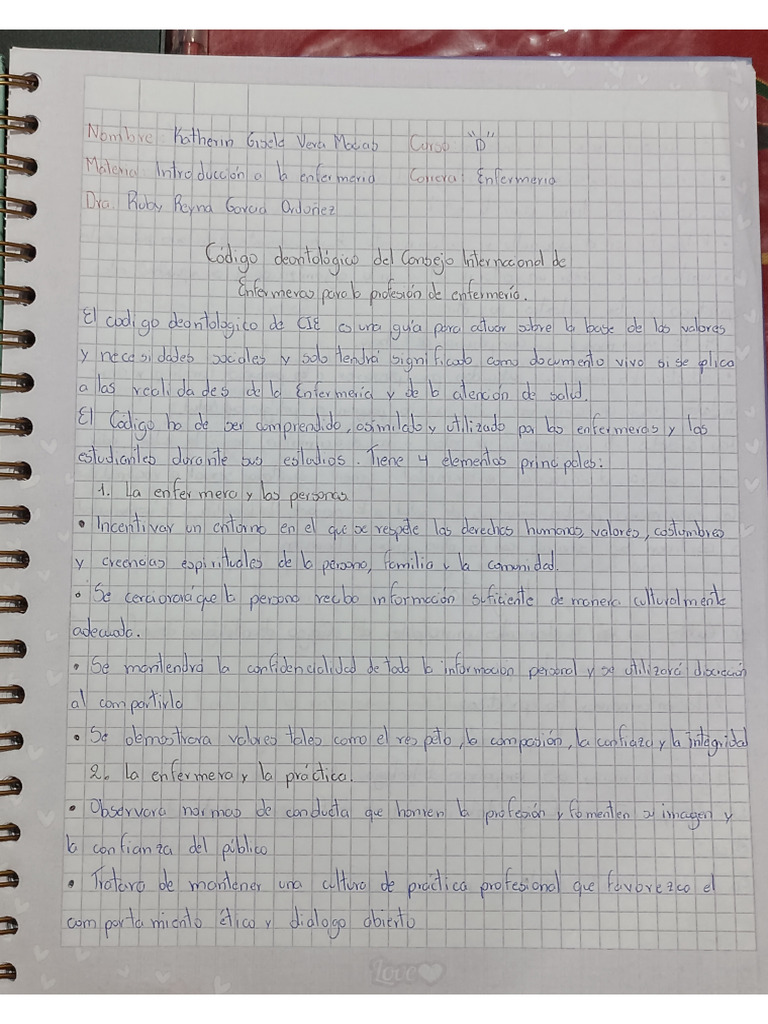 Nombre: Katherin Gisela Vera Macas Curso "D"
Materia: Introducción a la enfermeria Carrera: Enfermeria
Dra. Ruby Reyna Garcia Ordoñez
Código deontológico del Consejo Internacional de
Enfermeras para la profesión de enfermería.
El codigo deontologico de CIE es una guía para actuar sobre la base de los valores
y necesidades sociales y solo tendrá significado como documento vivo si se plica
a las realidades de la Enfermería y de la atención de salud.
El Código ha de ser comprendido, asimilado y utilizado por las enfermeras y los
estudiantes durante sus estudios. Tiene 4 elementos principales:
1. La enfermera y las personas
• Incentivar un entorno en el que se respete los derechos humanos, valores, costumbres
y creencias espirituales de la persona, familia y la comunidad.
• Se cerciorará que la persona reciba información suficiente de manera culturalmente
adecuada.
• Se mantendrá la confidencialidad de toda la información personal y se utilizará discreción
al compartirla
• Se demostrara valores tales como el respeto, la compasión, la confiaza y la integridad
2. La enfermera y la práctica.
• Observara normas de conducta que honren la profesión y fomenten su imagen y
la confianza del público
• Tratara de mantener una cultura de práctica profesional que favorezca el
comportamiento ético y dialogo abierto
Love